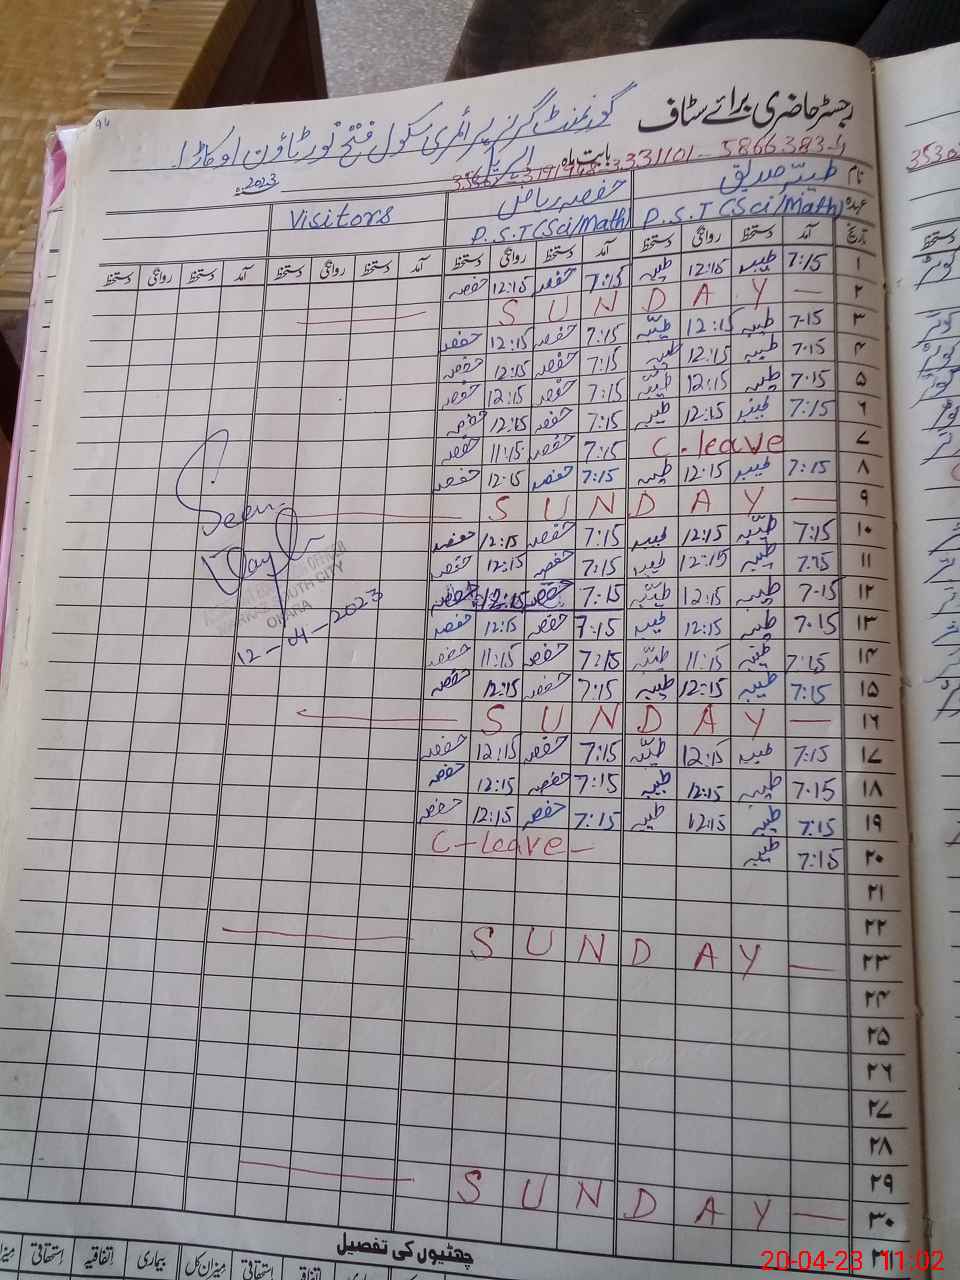 96
رجسٹر حاضری برائے سٹاف گورنمنٹ گرلز پرائمری سکول فتح نور ٹاؤن اوکاڑا
بابت ماہ اپریل 2023ء
نام طیبہ صدیق حفصہ ریاض Visitors
عہدہ P.S.T (Sci/Math) P.S.T (Sci/Math)
تاریخ آمد دستخط روانگی دستخط آمد دستخط روانگی دستخط آمد دستخط روانگی دستخط آمد دستخط روانگی دستخط
۱ 7:15 طیبہ 12:15 طیبہ 7:15 حفصہ 12:15 حفصہ
۲ — SUNDAY
۳ 7.15 طیبہ 12:15 طیبہ 7:15 حفصہ 12:15 حفصہ
۴ 7.15 طیبہ 12:15 طیبہ 7:15 حفصہ 12:15 حفصہ
۵ 7.15 طیبہ 12:15 طیبہ 7:15 حفصہ 12:15 حفصہ
۶ 7:15 طیبہ 12:15 طیبہ 7:15 حفصہ 12:15 حفصہ
۷ C-leave 7:15 حفصہ 11:15 حفصہ
۸ 7:15 طیبہ 12:15 طیبہ 7:15 حفصہ 12:15 حفصہ
۹ — SUNDAY
۱۰ 7:15 طیبہ 12:15 طیبہ 7:15 حفصہ 12:15 حفصہ
۱۱ 7:15 طیبہ 12:15 طیبہ 7:15 حفصہ 12:15 حفصہ
۱۲ 7.15 طیبہ 12:15 طیبہ 7:15 حفصہ 12:15 حفصہ
۱۳ 7.15 طیبہ 12:15 طیبہ 7:15 حفصہ 12:15 حفصہ
۱۴ 7:15 طیبہ 11:15 طیبہ 7:15 حفصہ 11:15 حفصہ
۱۵ 7:15 طیبہ 12:15 طیبہ 7:15 حفصہ 12:15 حفصہ
۱۶ — SUNDAY
۱۷ 7:15 طیبہ 12:15 طیبہ 7:15 حفصہ 12:15 حفصہ
۱۸ 7.15 طیبہ 12:15 طیبہ 7:15 حفصہ 12:15 حفصہ
۱۹ 7:15 طیبہ 12:15 طیبہ 7:15 حفصہ 12:15 حفصہ
۲۰ 7:15 طیبہ C-leave-
۲۱
۲۲
۲۳ — SUNDAY
۲۴
۲۵
۲۶
۲۷
۲۸
۲۹
۳۰ — SUNDAY
۳۱
Seen
SOUTH CITY
OKARA
12-04-2023
چھٹیوں کی تفصیل
اتفاقیہ استحقاقی میزان کل بیماری اتفاقیہ استحقاقی
20-04-23 11:02